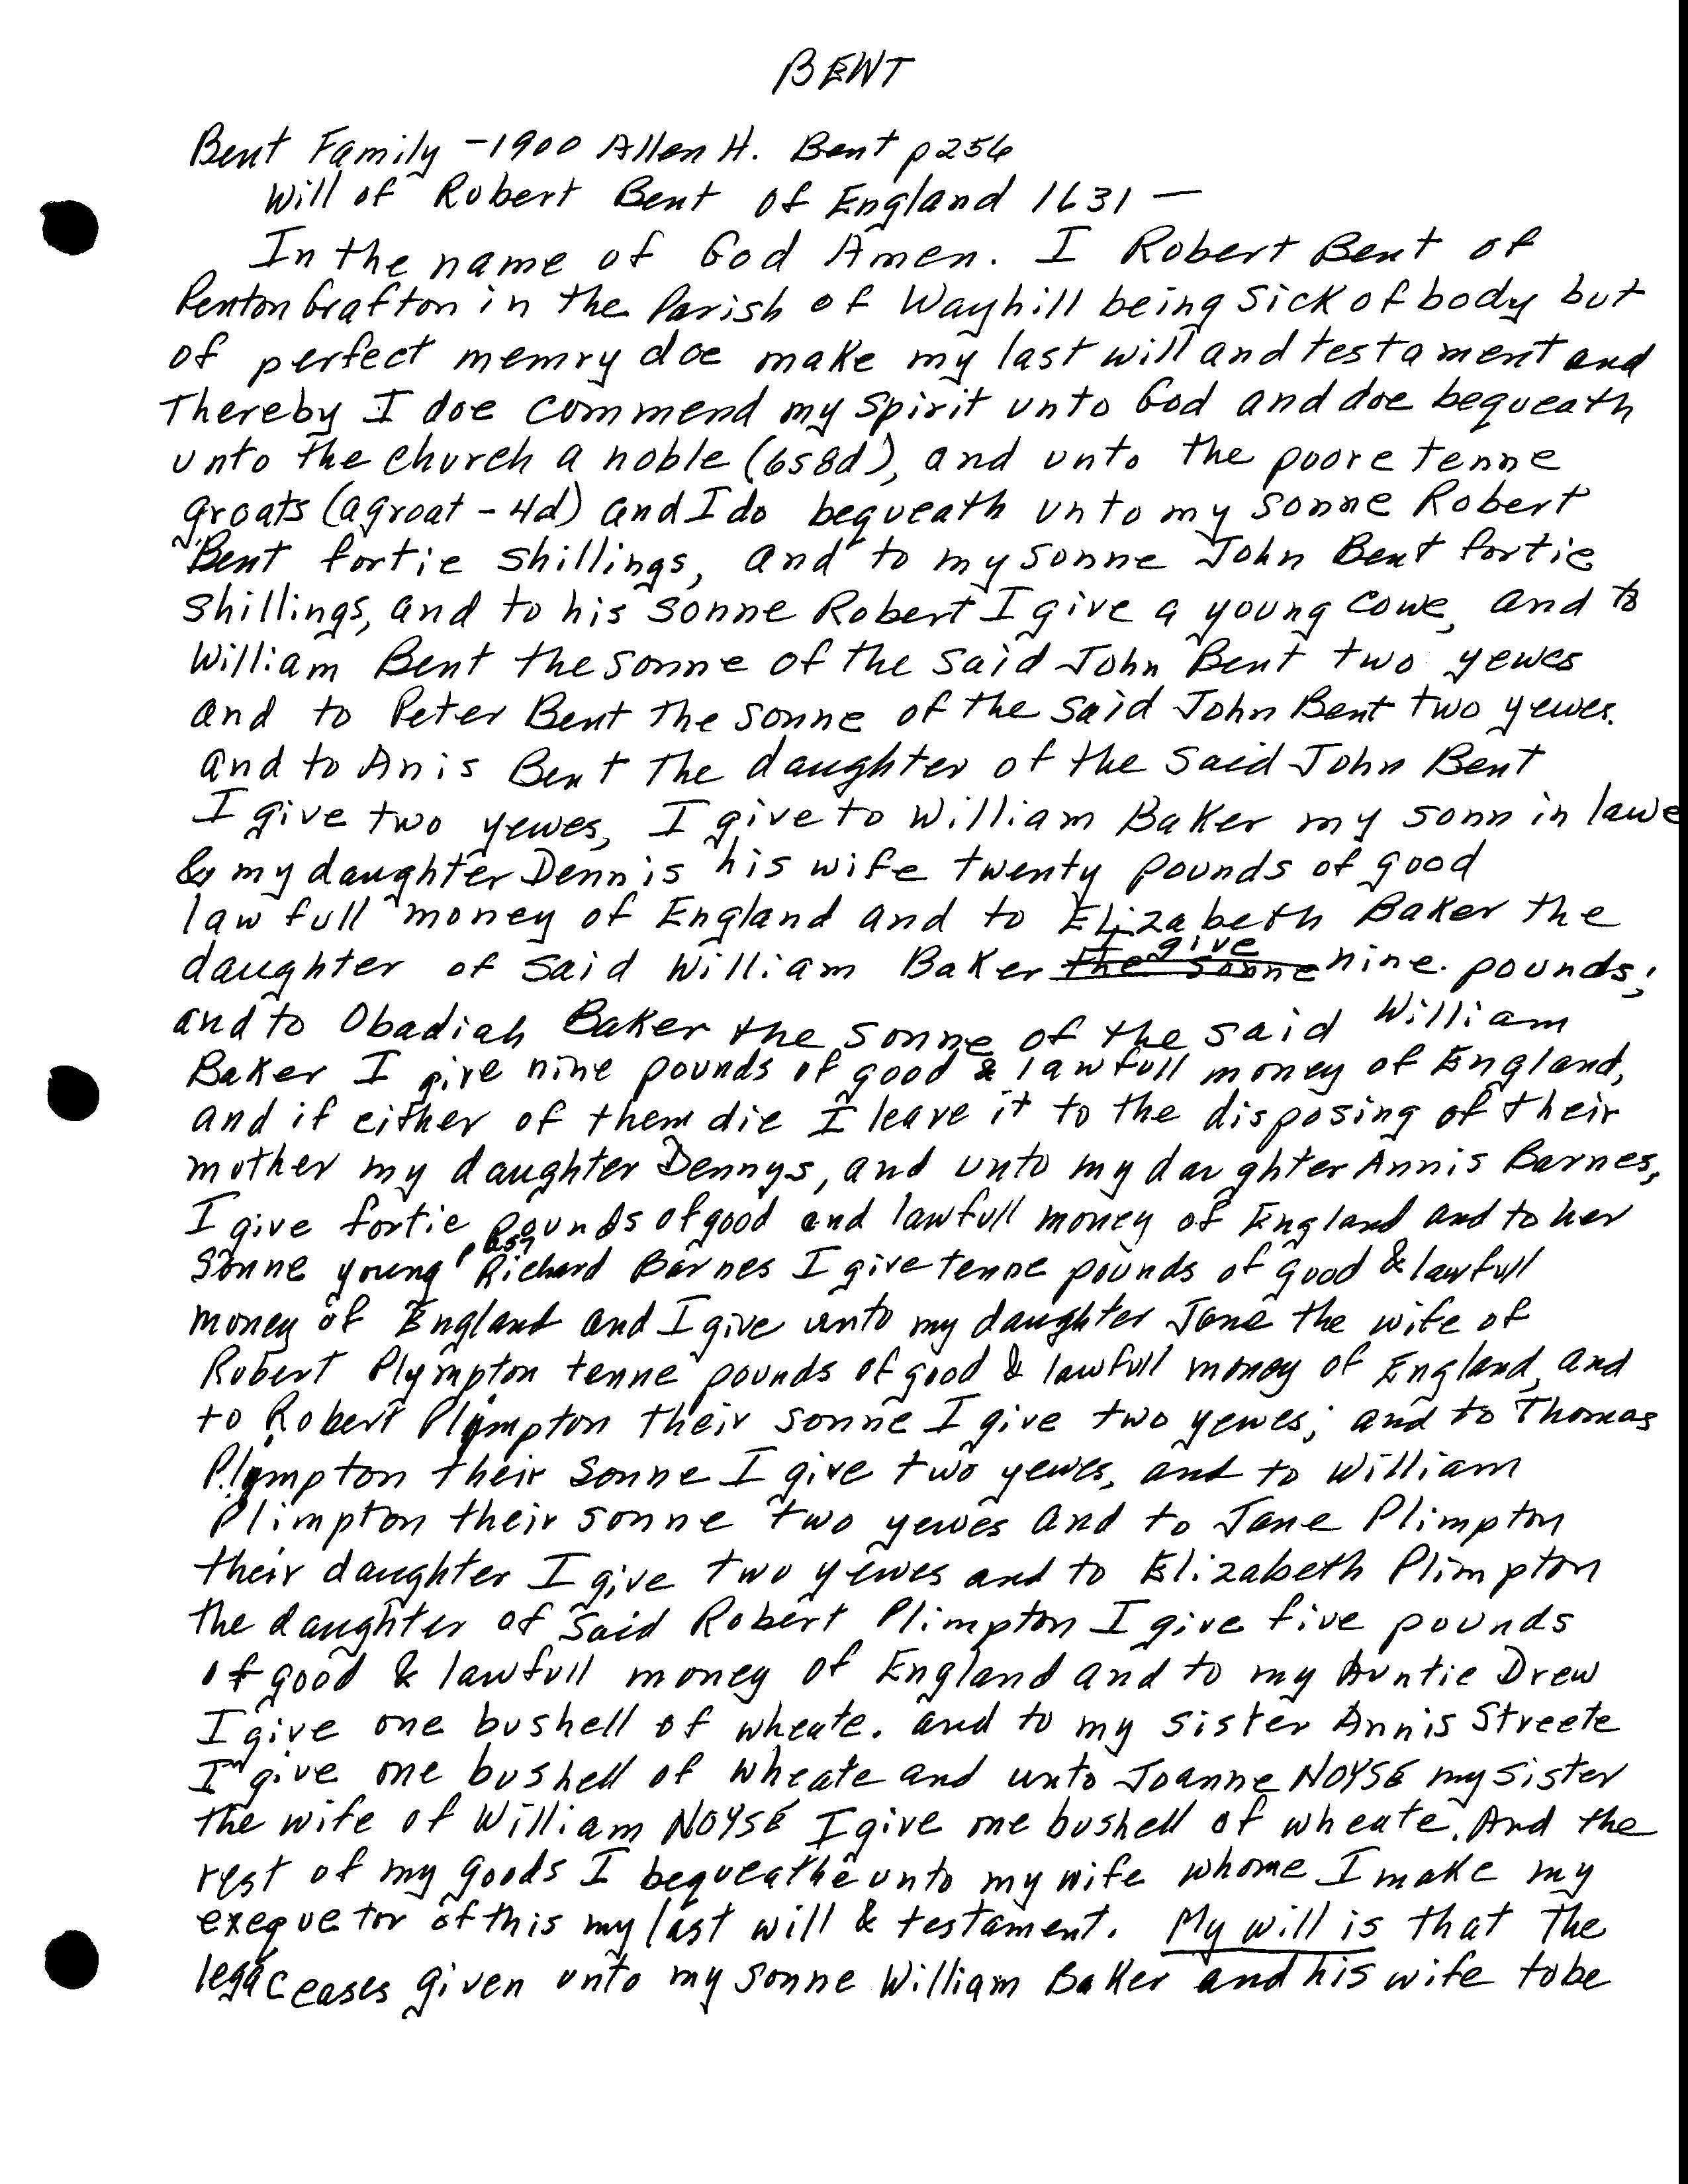 BENT
Bent Family - 1900 Allen H. Bent p256
Will of Robert Bent of England 1631 —
In the name of God Amen. I Robert Bent of
Penton Grafton in the Parish of Wayhill being sick of body but
of perfect memry doe make my last will and testament and
Thereby I doe commend my spirit unto God and doe bequeath
unto the church a noble (6s8d), and unto the poore tenne
groats (a groat - 4d) and I do bequeath unto my sonne Robert
Bent fortie shillings, and to my sonne John Bent fortie
shillings, and to his sonne Robert I give a young cowe, and to
William Bent the sonne of the said John Bent two yewes
and to Peter Bent the sonne of the said John Bent two yewes.
and to Anis Bent the daughter of the said John Bent
I give two yewes, I give to William Baker my sonn in lawe
& my daughter Dennis his wife twenty pounds of good
lawfull money of England and to Elizabeth Baker the
daughter of said William Baker the sonne I give nine pounds;
and to Obadiah Baker the sonne of the said William
Baker I give nine pounds of good & lawfull money of England,
and if either of them die I leave it to the disposing of their
mother my daughter Dennys, and unto my daughter Annis Barnes,
I give fortie pounds of good and lawfull money of England and to her
sonne young Richard Barnes I give tenne pounds of good & lawfull
money of England and I give unto my daughter Jane the wife of
Robert Plympton tenne pounds of good & lawfull money of England, and
to Robert Plympton their sonne I give two yewes; and to Thomas
Plympton their sonne I give two yewes, and to William
Plimpton their sonne two yewes and to Jane Plimpton
their daughter I give two yewes and to Elizabeth Plimpton
the daughter of said Robert Plimpton I give five pounds
of good & lawfull money of England and to my Auntie Drew
I give one bushell of wheate. and to my sister Annis Streete
I give one bushell of wheate and unto Joanne NOYSE my sister
the wife of William NOYSE I give one bushell of wheate. And the
rest of my goods I bequeathe unto my wife whome I make my
exequetor of this my last will & testament. My will is that the
legaceases given unto my sonne William Baker and his wife to be